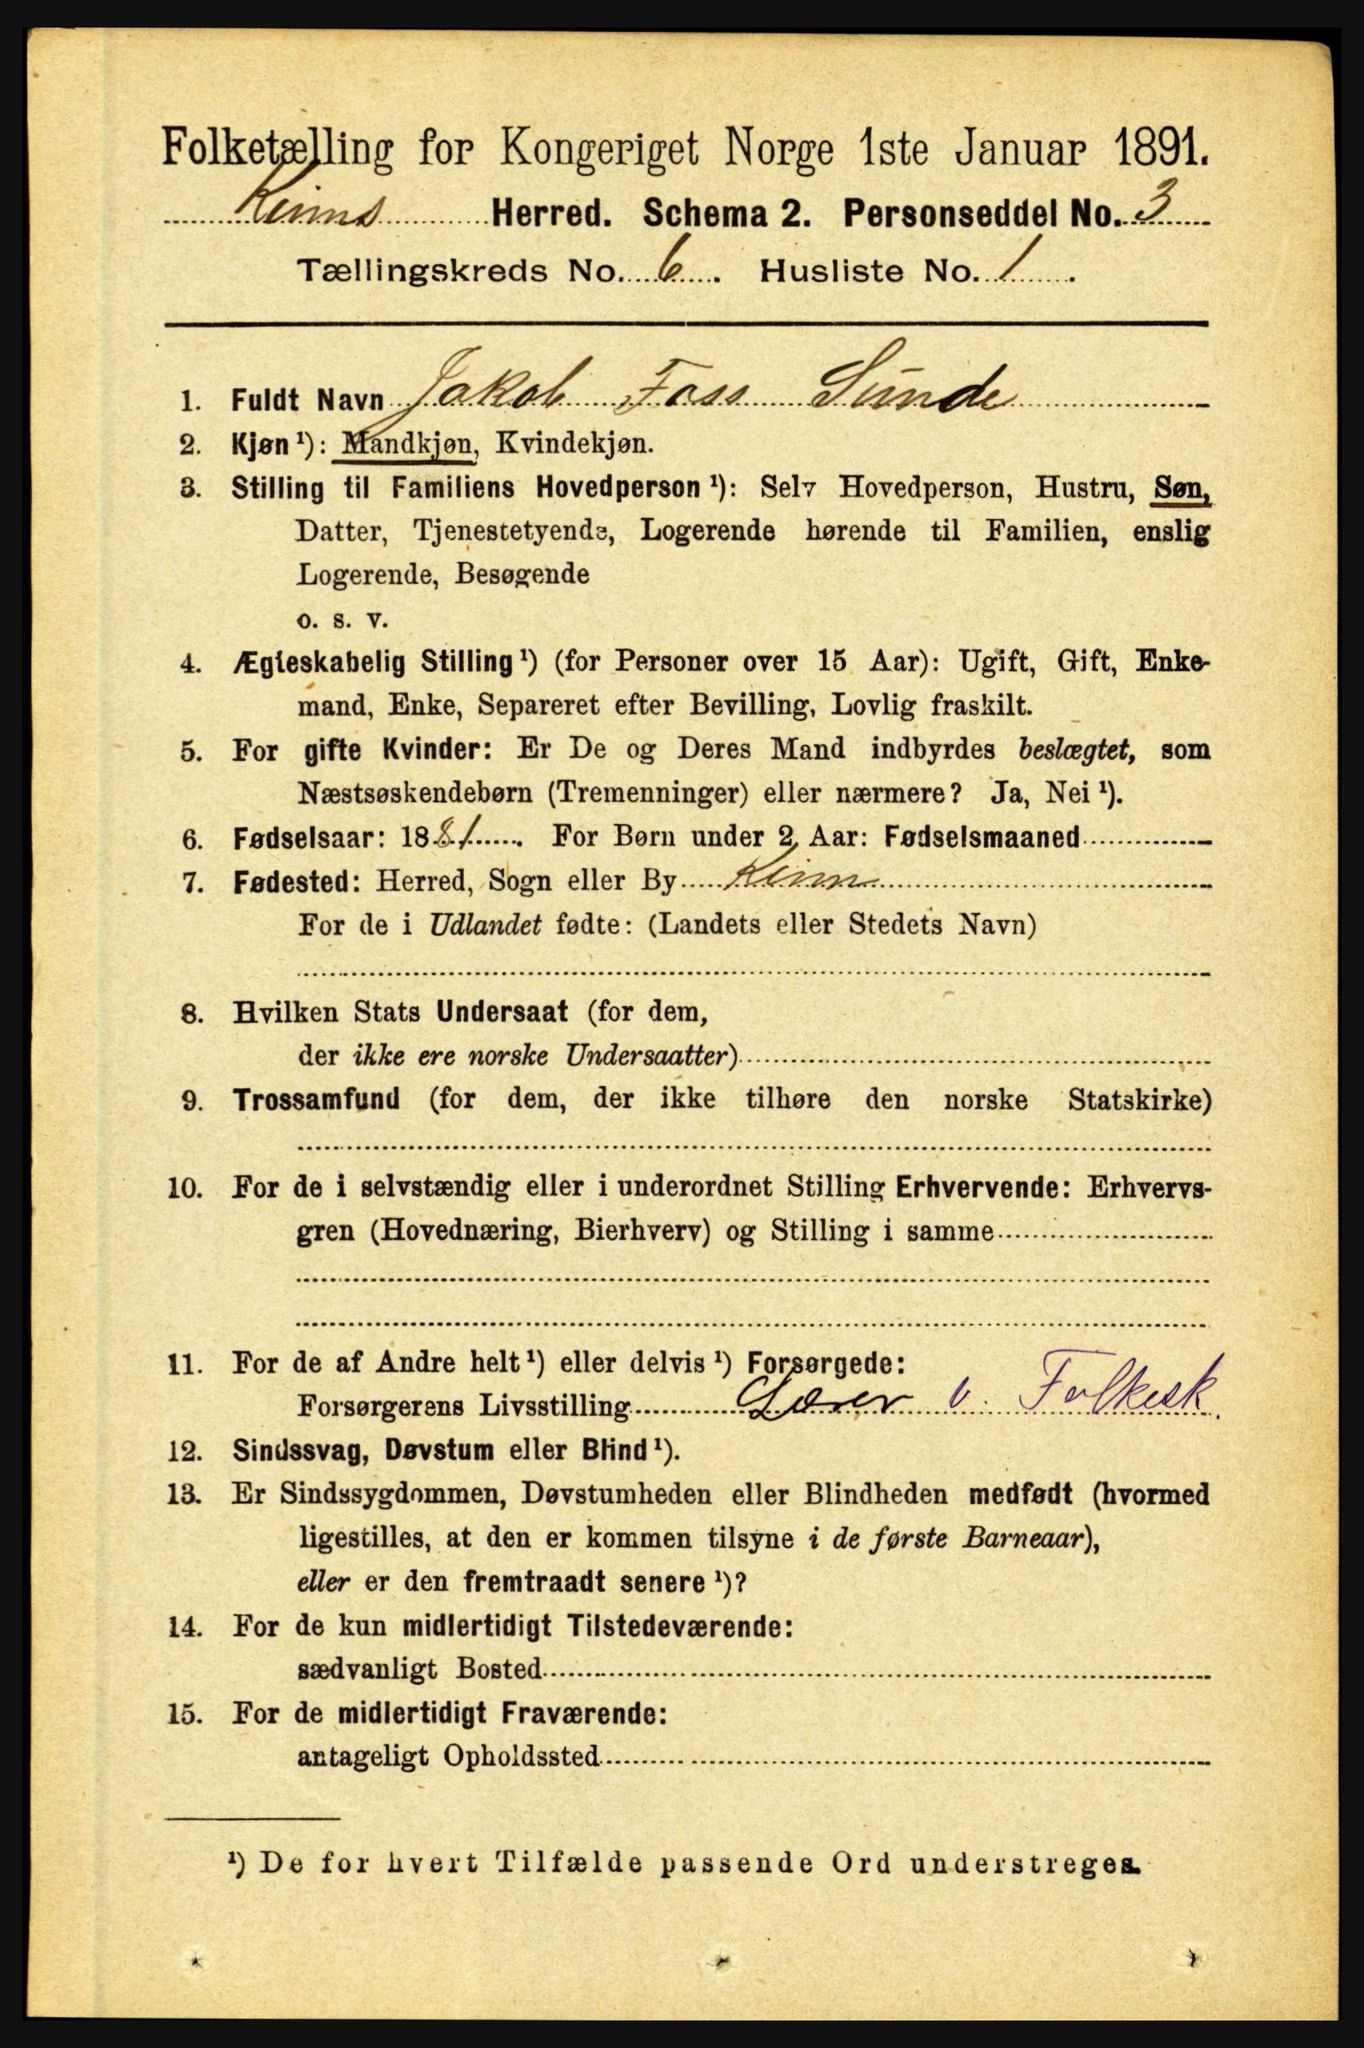 Folketælling for Kongeriget Norge 1ste Januar 1891.
Kinns Herred. Schema 2. Personseddel No. 3
Tællingskreds No. 6. Husliste No. 1.
1. Fuldt Navn Jakob Foss Sunde
2. Kjøn ¹): Mandkjøn, Kvindekjøn.
3. Stilling til Familiens Hovedperson ¹): Selv Hovedperson, Hustru, Søn,
Datter, Tjenestetyende, Logerende hørende til Familien, enslig
Logerende, Besøgende
o. s. v.
4. Ægteskabelig Stilling ¹) (for Personer over 15 Aar): Ugift, Gift, Enke-
mand, Enke, Separeret efter Bevilling, Lovlig fraskilt.
5. For gifte Kvinder: Er De og Deres Mand indbyrdes beslægtet, som
Næstsøskendebørn (Tremenninger) eller nærmere? Ja, Nei ¹).
6. Fødselsaar: 1881. For Børn under 2 Aar: Fødselsmaaned
7. Fødested: Herred, Sogn eller By Kinn
For de i Udlandet fødte: (Landets eller Stedets Navn)
8. Hvilken Stats Undersaat (for dem,
der ikke ere norske Undersaatter)
9. Trossamfund (for dem, der ikke tilhøre den norske Statskirke)
10. For de i selvstændig eller i underordnet Stilling Erhvervende: Erhvervs-
gren (Hovednæring, Bierhverv) og Stilling i samme
11. For de af Andre helt ¹) eller delvis ¹) Forsørgede:
Forsørgerens Livsstilling Lærer v. Folkesk.
12. Sindssvag, Døvstum eller Blind ¹).
13. Er Sindssygdommen, Døvstumheden eller Blindheden medfødt (hvormed
ligestilles, at den er kommen tilsyne i de første Barneaar),
eller er den fremtraadt senere ¹)?
14. For de kun midlertidigt Tilstedeværende:
sædvanligt Bosted
15. For de midlertidigt Fraværende:
antageligt Opholdssted
¹) De for hvert Tilfælde passende Ord understreges.